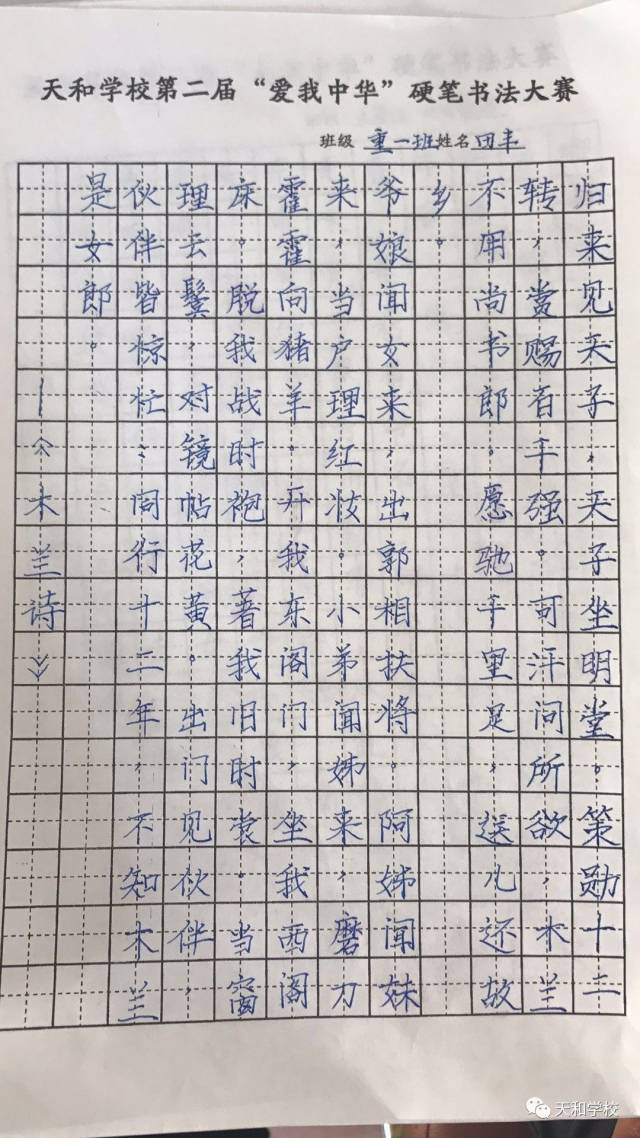 天和学校第二届“爱我中华”硬笔书法大赛
班级 重一班 姓名 田丰
归来见天子，天子坐明堂。策勋十二
转，赏赐百千强。可汗问所欲，木兰
不用尚书郎。愿驰千里足，送儿还故
乡。
爷娘闻女来，出郭相扶将。阿姊闻妹
来，当户理红妆。小弟闻姊来，磨刀
霍霍向猪羊。开我东阁门，坐我西阁
床。脱我战时袍，著我旧时裳。当窗
理云鬓，对镜帖花黄。出门见伙伴
伙伴皆惊忙、同行十二年，不知木兰
是女郎。
—《木兰诗》
天和学校